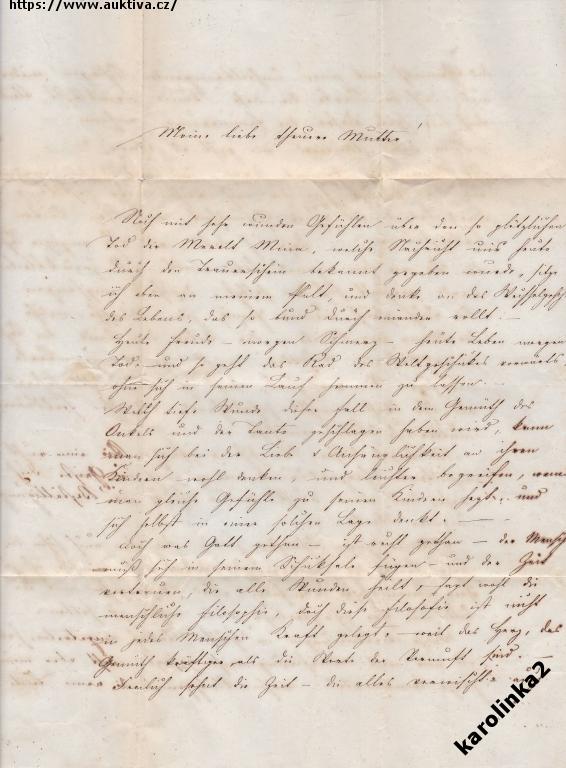 https://www.auktiva.cz/
Meine liebe theuere Mutter!
Noch mit sehr wunden Gefühlen über den so plötzlichen
Tod der Merelt Mina, welche Nachricht uns heute
durch den Trauerschein bekannt gegeben wurde, sitze
ich eben an meinem Pult, und denke an das
des Lebens, das so bund durcheinander rollt. –
Heute Freude – morgen Schmerz – heute Leben morgen
Tod – und so geht das Rad des Weltgeschickes vorwärts.
ohne sich in seinem Lauf hemmen zu lassen. –
Welch tiefe Wunde dieser Fall in dem Gemüth des
Onkels und der Tante geschlagen haben wird, kann
man sich bei der Liebe & Anhänglichkeit an ihren
Kindern wohl denken, und leichter begreifen, wenn
man gleiche Gefühle zu seinen Kindern hegt, und
sich selbst in einer solchen Lage denkt. –
Doch was Gott gethan – ist recht gethan – der Mensch
muß sich in seinem Schicksale fügen – und der Zeit
vertrauen, die alle Wunden heilt, sagt wohl die
menschliche Filosophie, doch diese Filosofie ist nicht
in jedes Menschen Kraft gelegt – weil das Herz, das
Gemüth kräftiger als die Worte der Vernunft sind. –
Freilich die Zeit – die alles verwischt
karolinka2